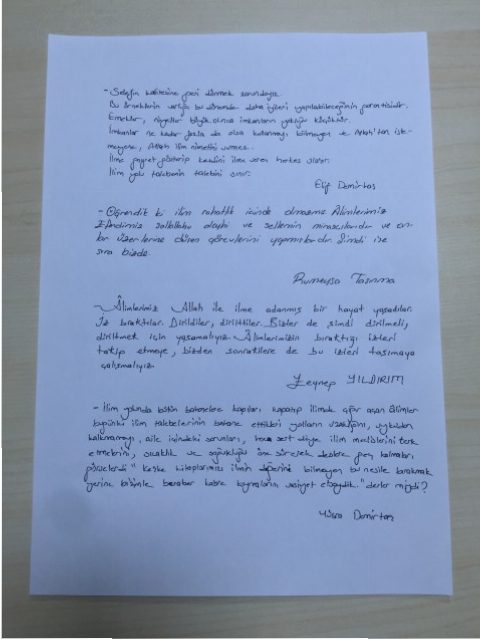 - Selefin kalitesine geri dönmek zorundayız.
Bu örneklerin varlığı bu dönemde daha iyileri yapılabileceğinin garantisidir.
Emekler, niyetler büyük olunca imkanların yokluğu küçüktür.
İmkanlar ne kadar fazla da olsa kullanmayı bilmeyen ve Allah'tan iste-
meyene, Allah ilim nimetini vermez.
İlme gayret gösterip kendini ilme veren herkes ulaşır.
İlim yolu talebenin talebini sınar.
Elif Demirtaş
- Öğrendik ki ilim rahatlık içinde olmazmış. Alimlerimiz
Efendimiz sallallahu aleyhi ve sellemin mirasçılarıdır ve on-
lar üzerlerine düşen görevlerini yapmışlardır. Şimdi ise
sıra bizde.
Rumeysa
- Âlimlerimiz Allah ile ilme adanmış bir hayat yaşadılar.
İz bıraktılar. Dirildiler, dirilttiler. Bizler de şimdi dirilmeli,
diriltmek için yaşamalıyız. Âlimlerimizin bıraktığı izleri
takip etmeye, bizden sonrakilere de bu izleri taşımaya
çalışmalıyız.
Zeynep YILDIRIM
- İlim yolunda bütün bahanelere kapıları kapatıp ilimde çığır açan âlimler
bugünkü ilim talebelerinin bahane ettikleri yolların uzaklığını, uykudan
kalkmamayı, aile içindeki sorunları, hoca sert diye ilim meclislerini terk
etmelerini, sıcaklık ve soğukluğu öne sürerek derslere geç kalmaları
görselerdi "keşke kitaplarımızı ilmin değerini bilmeyen bu nesile bırakmak
yerine bizimle beraber kabre koymalarını vasiyet etseydik." derler miydi?
Kübra Demirtaş